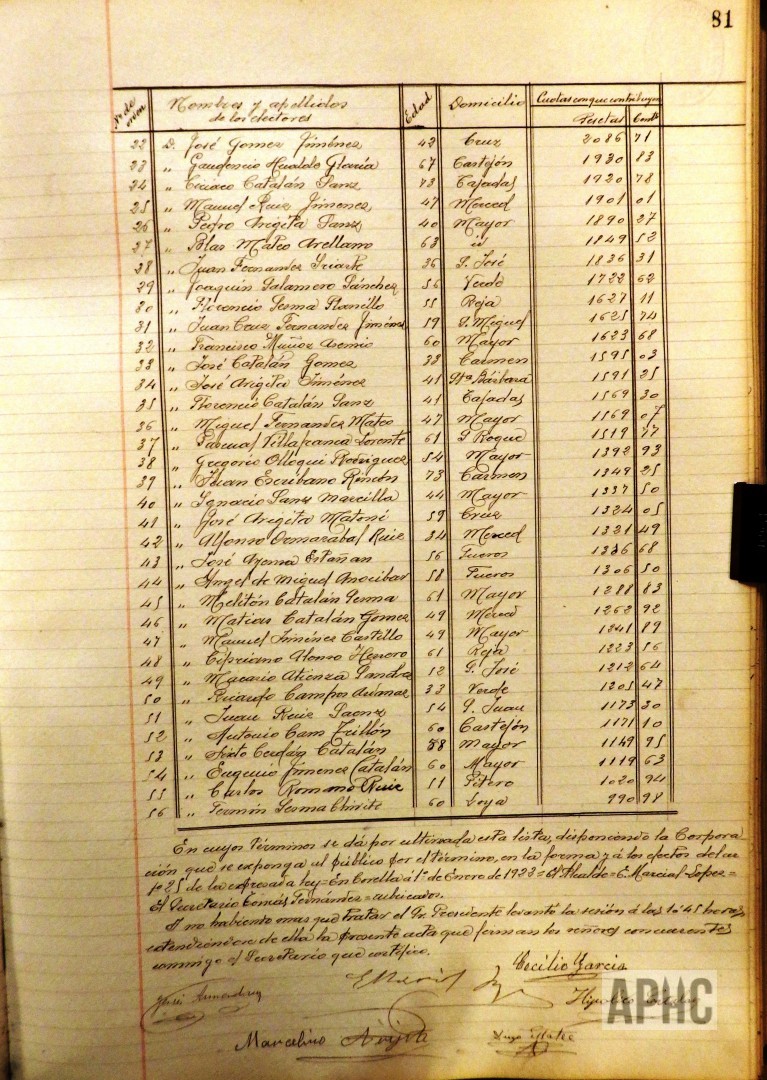 81
Nº de orden Nombres y apellidos de los electores Edad Domicilio Cuotas con que contribuyen
Pesetas Cents
22 D. José Gomez Jiménez 42 Cruz 2086 71
23 " Gaudencio Hualde Gloria 67 Castejón 1930 83
24 " Ciriaco Catalán Sanz 73 Cajadas 1920 78
25 " Manuel Ruiz Jimenez 47 Merced 1901 01
26 " Pedro Arigita Sanz 40 Mayor 1890 27
27 " Blas Mateo Arellano 63 id 1849 52
28 " Juan Fernandez Iriarte 36 S. José 1836 31
29 " Joaquin Salamero Sánchez 56 Verde 1722 62
30 " Florencio Sesma Planillo 55 Reja 1627 11
31 " Juan Cruz Fernandez Jiménez 59 S. Miguel 1625 74
32 " Francisco Muñoz 60 Mayor 1623 68
33 " José Catalán Gomez 33 Carmen 1595 03
34 " José Arigita Jiménez 41 Sta Bárbara 1591 25
35 " Florencio Catalán Sanz 41 Cajadas 1569 30
36 " Miguel Fernandez Mateo 47 Mayor 1569 07
37 " Pascual Villafranca Lorente 61 S Roque 1519 77
38 " Gregorio Olloqui Rodriguez 54 Mayor 1392 93
39 " Juan Escribano Rincón 73 Carmen 1349 25
40 " Ignacio Sanz Marcilla 44 Mayor 1337 50
41 " José Arigita Matoné 59 Cruz 1324 05
42 " Alfonso Ruiz 34 Merced 1321 49
43 " José 56 Fueros 1316 68
44 " Angel de Miguel Anocibar 58 Fueros 1306 50
45 " Melitón Catalán Sesma 61 Mayor 1288 83
46 " Matias Catalán Gomez 49 Merced 1262 92
47 " Manuel Jiménez Castillo 49 Mayor 1241 89
48 " Cipriano Alonso Herrero 61 Reja 1223 56
49 " Macario Atienza 52 S. José 1212 64
50 " Ricardo Campos 33 Verde 1205 47
51 " Juan Ruiz Saenz 54 S. Juan 1173 30
52 " Antonio Cam Trillón 60 Castejón 1171 10
53 " Sixto Cerdán Catalán 38 Mayor 1149 95
54 " Eugenio Jimenez Catalán 60 Mayor 1119 63
55 " Carlos Romano Ruiz 51 Fitero 1020 94
56 " Fermín Sesma Chivite 60 Goya 990 98
En cuyos términos se dá por ultimada esta lista, disponiendo la Corpora
ción que se exponga al público por el término, en la forma y á los efectos del ar
tº 25 de la expresada ley = En Corella á 1º de Enero de 1922 = El Alcalde = E. Marcial Lopez =
El Secretario Tomás Fernández = rubricados.
Y no habiendo mas que tratar el Sr. Presidente levantó la sesión á las 1:45 horas
extendiéndose de ella la presente acta que firman los señores concurrentes
conmigo el Secretario que certifico.
Cecilio Garcia
José Armendariz
Hipolito
Marcelino Arigita
APHC